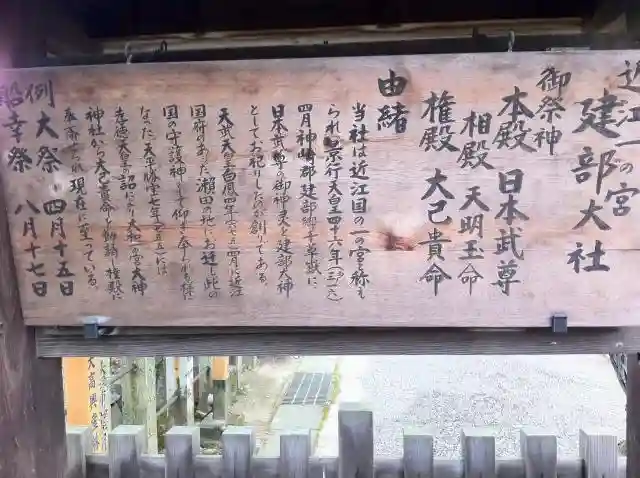 近江一の宮
建部大社
御祭神
本殿 日本武尊
相殿 天明玉命
権殿 大己貴命
由緒
当社は近江国の一の宮と称え
られ景行天皇四十六年
四月神崎郡建部郷千草嶽に
日本武尊の御神霊を建部大神
としてお祀りしたのが創りである
天武天皇白鳳四年 四月に近江
国府のあった瀬田の地にお遷し此の
国の守護神として仰ぎ奉しれる様に
なった 天平勝宝七年 には
孝徳天皇の詔により大和一の宮大神
神社から大己貴命を勧請し権殿に
現在に至っている。
例大祭 四月十五日
船幸祭 八月十七日